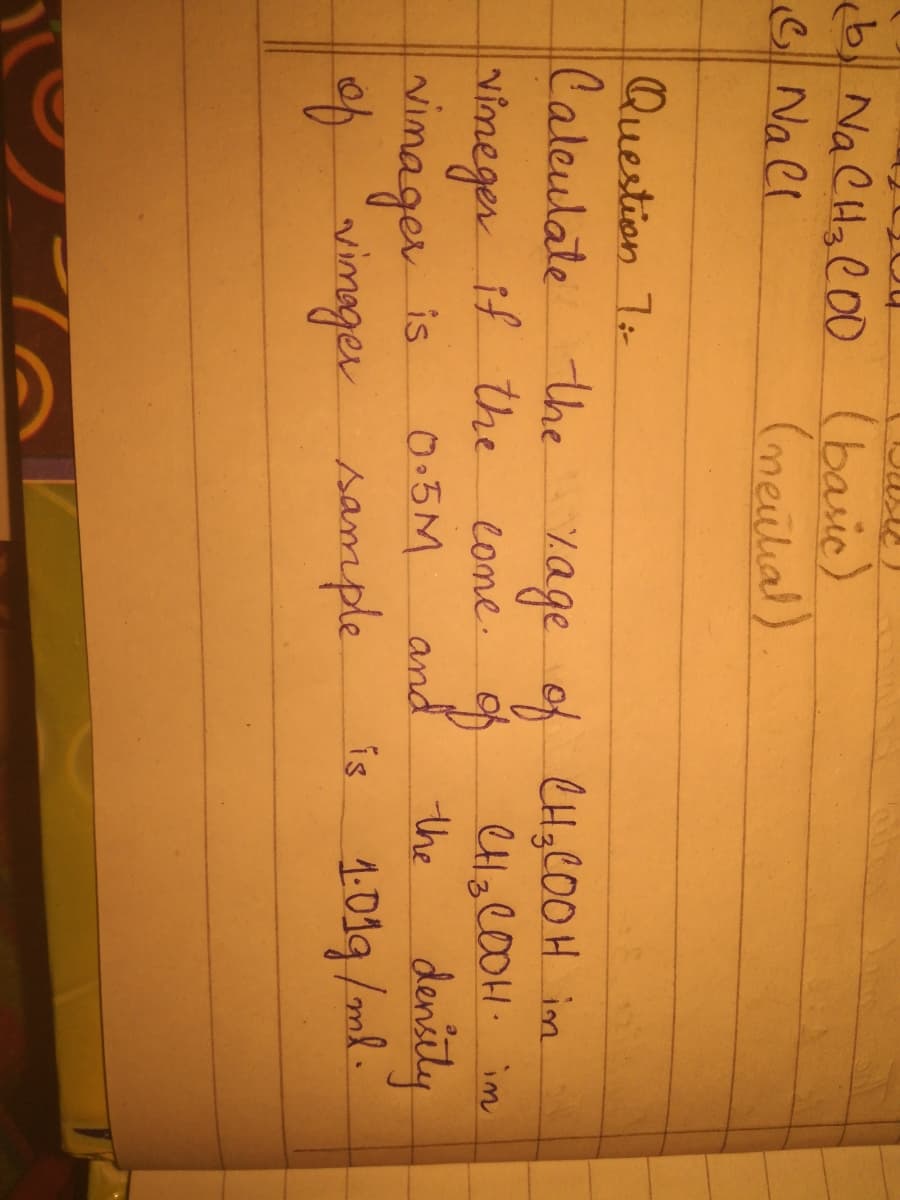 (b) NaCH₃COO (basic)
(c) NaCl (neutral).
Question 7:-
Calculate the %age of CH₃COOH in
vineger if the conc. of CH₃COOH. in
vinager is 0.5M and the density
of vinager sample is 1.01g/ml.